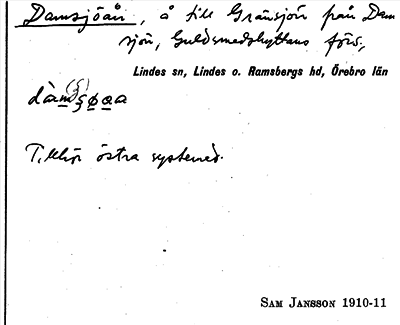 Damsjöån, å till Gränsjön från Dam
sjön, Guldsmedshyttans förs.,
Lindes sn, Lindes o. Ramsbergs hd, Örebro län
Tillhör östra systemet.
SAM JANSSON 1910-11